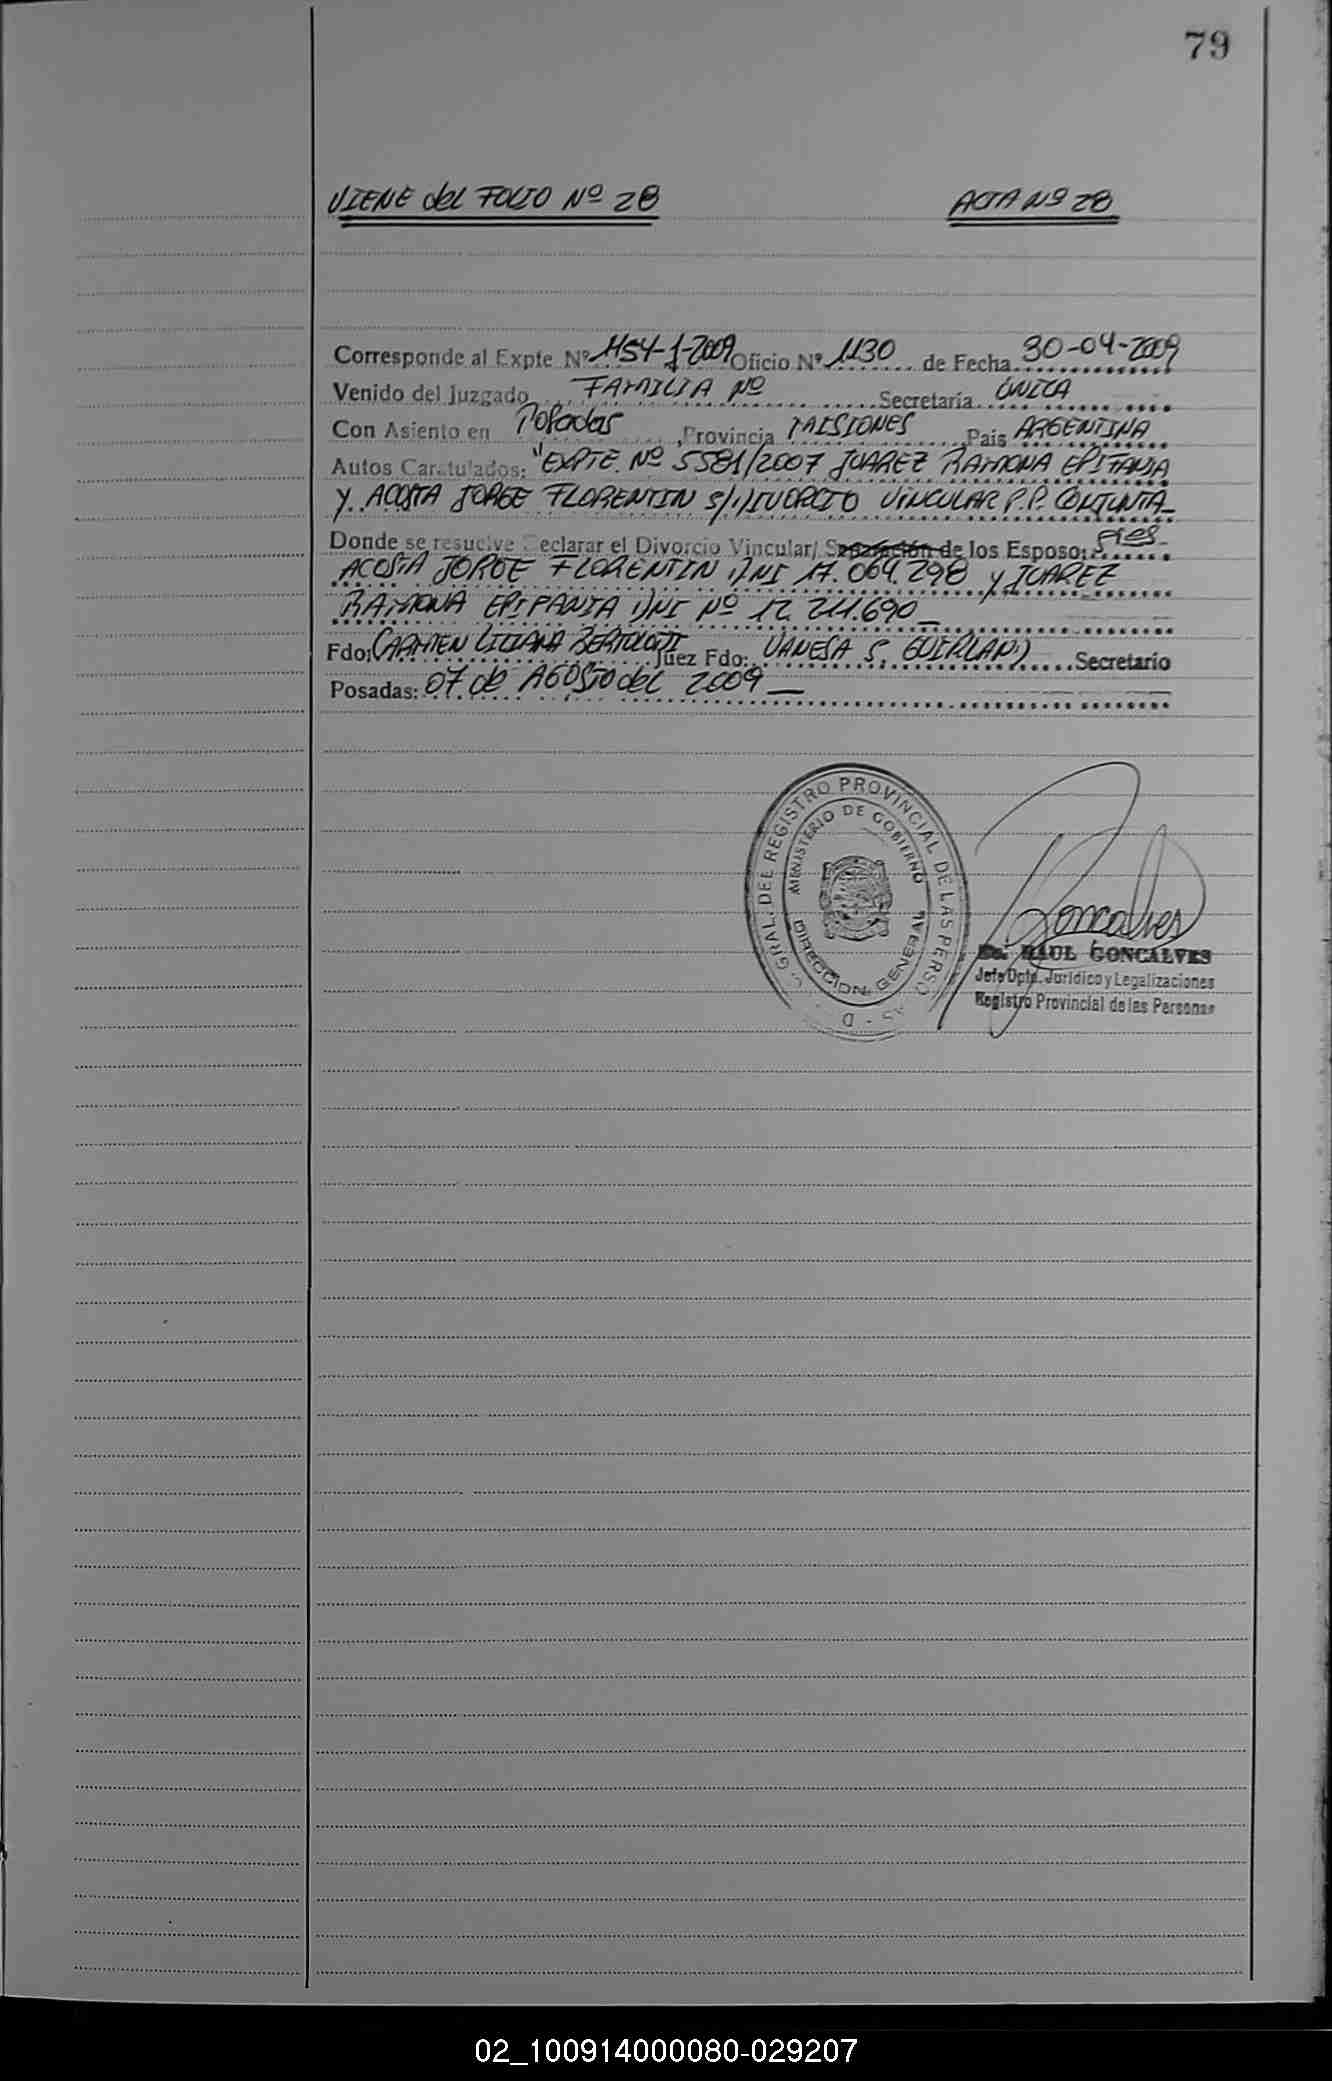 79
VIENE del FOLIO Nº 28 ACTA Nº 28
Corresponde al Expte Nº 1154-J-2009 Oficio Nº 1130 de Fecha 30-04-2009
Venido del Juzgado FAMILIA Nº Secretaria UNICA
Con Asiento en Posadas, Provincia MISIONES Pais ARGENTINA
Autos Caratulados: "EXPTE. Nº 5581/2007 JUAREZ RAMONA EPIFANIA
Y ACOSTA JORGE FLORENTIN S/DIVORCIO VINCULAR P.P. CONJUNTA_
Donde se resuelve Declarar el Divorcio Vincular/ Separación de los Esposos:
ACOSTA JORGE FLORENTIN DNI 17.064.298 Y JUAREZ
RAMONA EPIFANIA DNI Nº 12.211.690_
Fdo: CARMEN LILIANA BERTOLOTTI Juez Fdo: VANESA S. GUIRLAND Secretario
Posadas: 07 de AGOSTO del 2009_
GRAL. DEL REGISTRO PROVINCIAL DE LAS PERSONAS
MINISTERIO DE GOBIERNO
DIRECCION GENERAL
Goncalves
RAUL GONCALVES
Jefe Dpto. Jurídico y Legalizaciones
Registro Provincial de las Personas
02_100914000080-029207